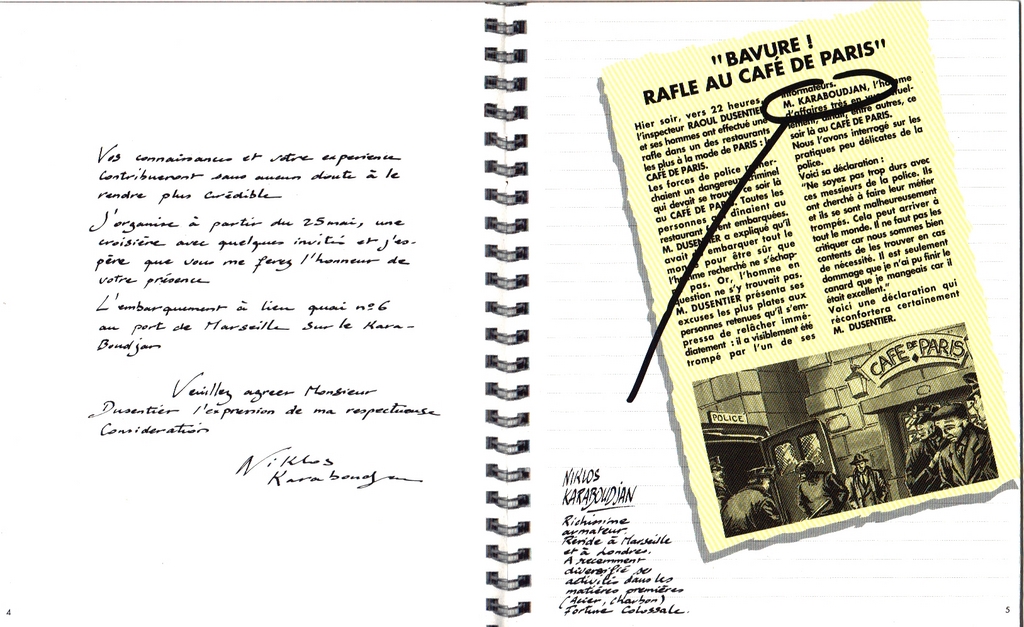 Vos connaissances et votre experience
Contribueront sans aucun doute à le
rendre plus Crédible
J'organise à partir du 25 mai, une
croisière avec quelques invités et j'es-
père que vous me ferez l'honneur de
votre présence
L'embarquement à lieu quai n°6
au port de Marseille sur le Kara-
Boudjan
Veuillez agreer Monsieur
Dusentier l'expression de ma respectueuse
Consideration
Niklos
Karaboudjan
4
"BAVURE !
RAFLE AU CAFÉ DE PARIS"
Hier soir, vers 22 heures,
l'inspecteur RAOUL DUSENTIER
et ses hommes ont effectué une
rafle dans un des restaurants
les plus à la mode de PARIS : le
CAFÉ DE PARIS.
Les forces de police recher-
chaient un dangereux criminel
qui devait se trouver ce soir là
au CAFÉ DE PARIS. Toutes les
personnes qui dînaient au
restaurant furent embarquées.
M. DUSENTIER a expliqué qu'il
avait fait embarquer tout le
monde pour être sûr que
l'homme recherché ne s'échap-
pe pas. Or, l'homme en
question ne s'y trouvait pas.
M. DUSENTIER présenta ses
excuses les plus plates aux
personnes retenues qu'il s'em-
pressa de relâcher immé-
diatement : il a visiblement été
trompé par l'un de ses
informateurs.
M. KARABOUDJAN, l'homme
d'affaires très en vue actuel-
lement, dînait, entre autres, ce
soir là au CAFÉ DE PARIS.
Nous l'avons interrogé sur les
pratiques peu délicates de la
police.
Voici sa déclaration :
"Ne soyez pas trop durs avec
ces messieurs de la police. Ils
ont cherché à faire leur métier
et ils se sont malheureusement
trompés. Cela peut arriver à
tout le monde. Il ne faut pas les
critiquer car nous sommes bien
contents de les trouver en cas
de nécessité. Il est seulement
dommage que je n'ai pu finir le
canard que je mangeais car il
était excellent."
Voici une déclaration qui
réconfortera certainement
M. DUSENTIER.
CAFE DE PARIS
POLICE
NIKLOS
KARABOUDJAN
Richissime
armateur.
Réside à Marseille
et à Londres.
A recemment
diversifié ses
activités dans les
matières premières
(Acier, Charbon)
Fortune Colossale.
5